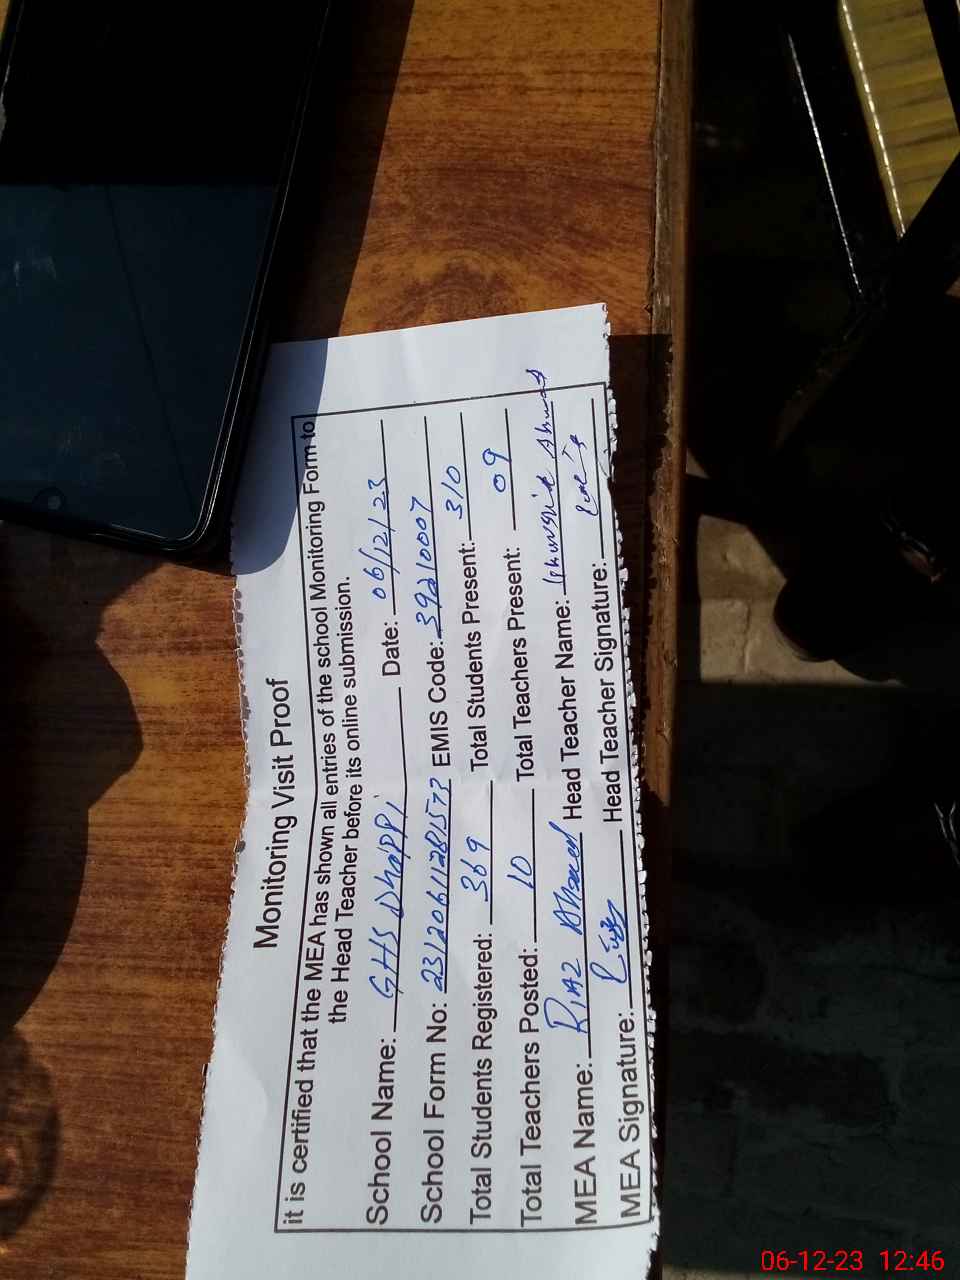 Monitoring Visit Proof
it is certified that the MEA has shown all entries of the school Monitoring Form to
the Head Teacher before its online submission.
School Name: GHS Dhappi Date: 06/12/23
School Form No: 23120611281573 EMIS Code: 39210007
Total Students Registered: 369 Total Students Present: 310
Total Teachers Posted: 10 Total Teachers Present: 09
MEA Name: Riaz Ahmed Head Teacher Name: Ahmad
MEA Signature: Head Teacher Signature:
06-12-23 12:46